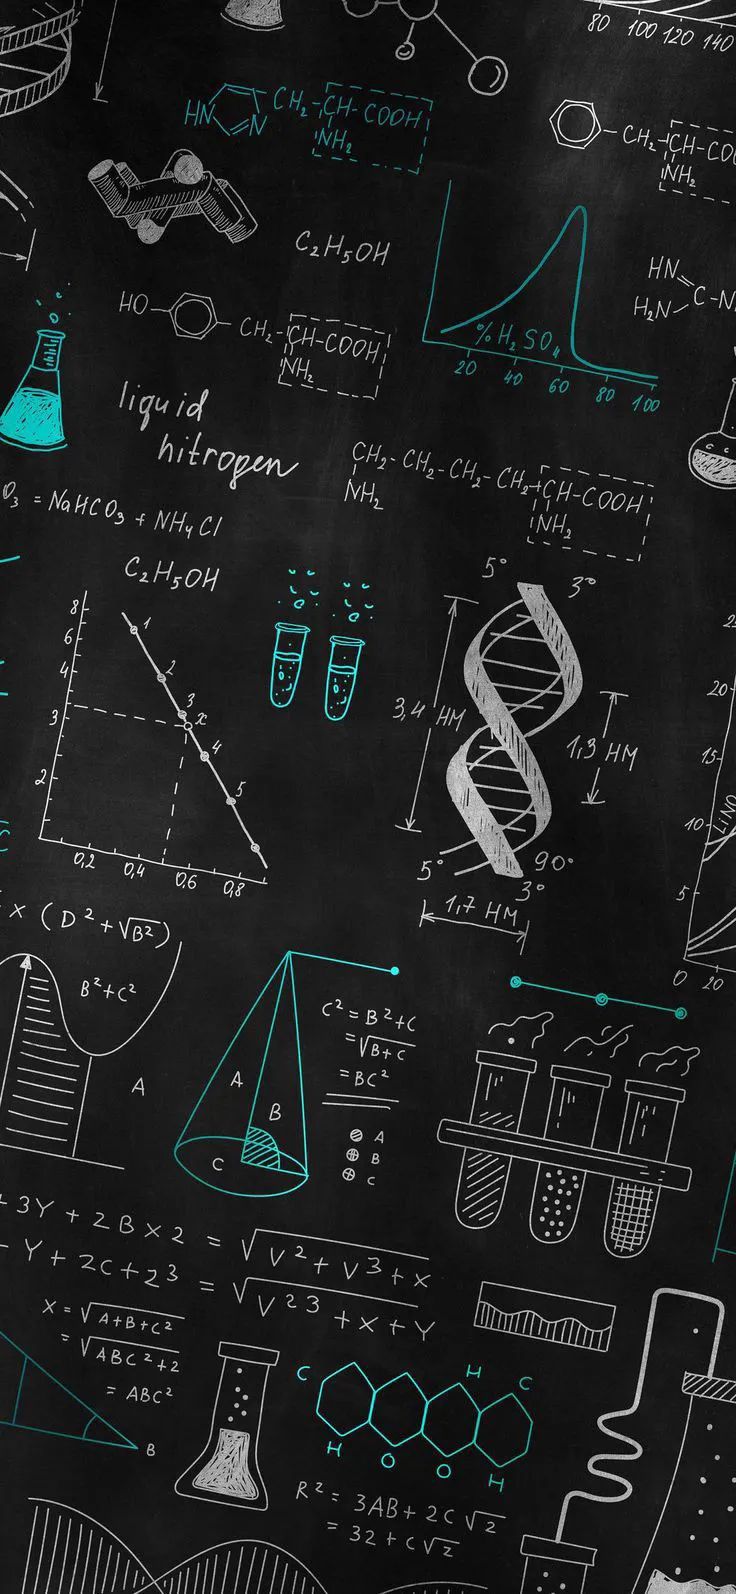 80 100 120 140
HN N CH₂-CH-COOH
NH₂
CH₂-CH-CO
NH₂
C₂H₅OH
HN
H₂N C-N
HO CH₂-CH-COOH
NH₂
% H₂SO₄
20 40 60 80 100
liquid
nitrogen
CH₂-CH₂-CH₂-CH₂-CH-COOH
NH₂ NH₂
O₃ = NaHCO₃ + NH₄Cl
C₂H₅OH
8
6
4
3
2
1
2
3
x
4
5
0,2 0,4 0,6 0,8
5° 3°
3,4 HM
1,3 HM
5° 90°
3°
1,7 HM
20
15
10
LiNO
5
0 20
x (D² + √B²)
B² + C²
A
A
B
C
C² = B² + C
= √B + C
= BC²
A
B
C
+ 3Y + 2B x 2 = √V² + V³ + x
- Y + 2C + 2³ = √V²³ + x + Y
X = √A + B + C²
= √ABC² + 2
= ABC²
B
C H C
H O O H
R² = 3AB + 2C√2
= 32 + C√2